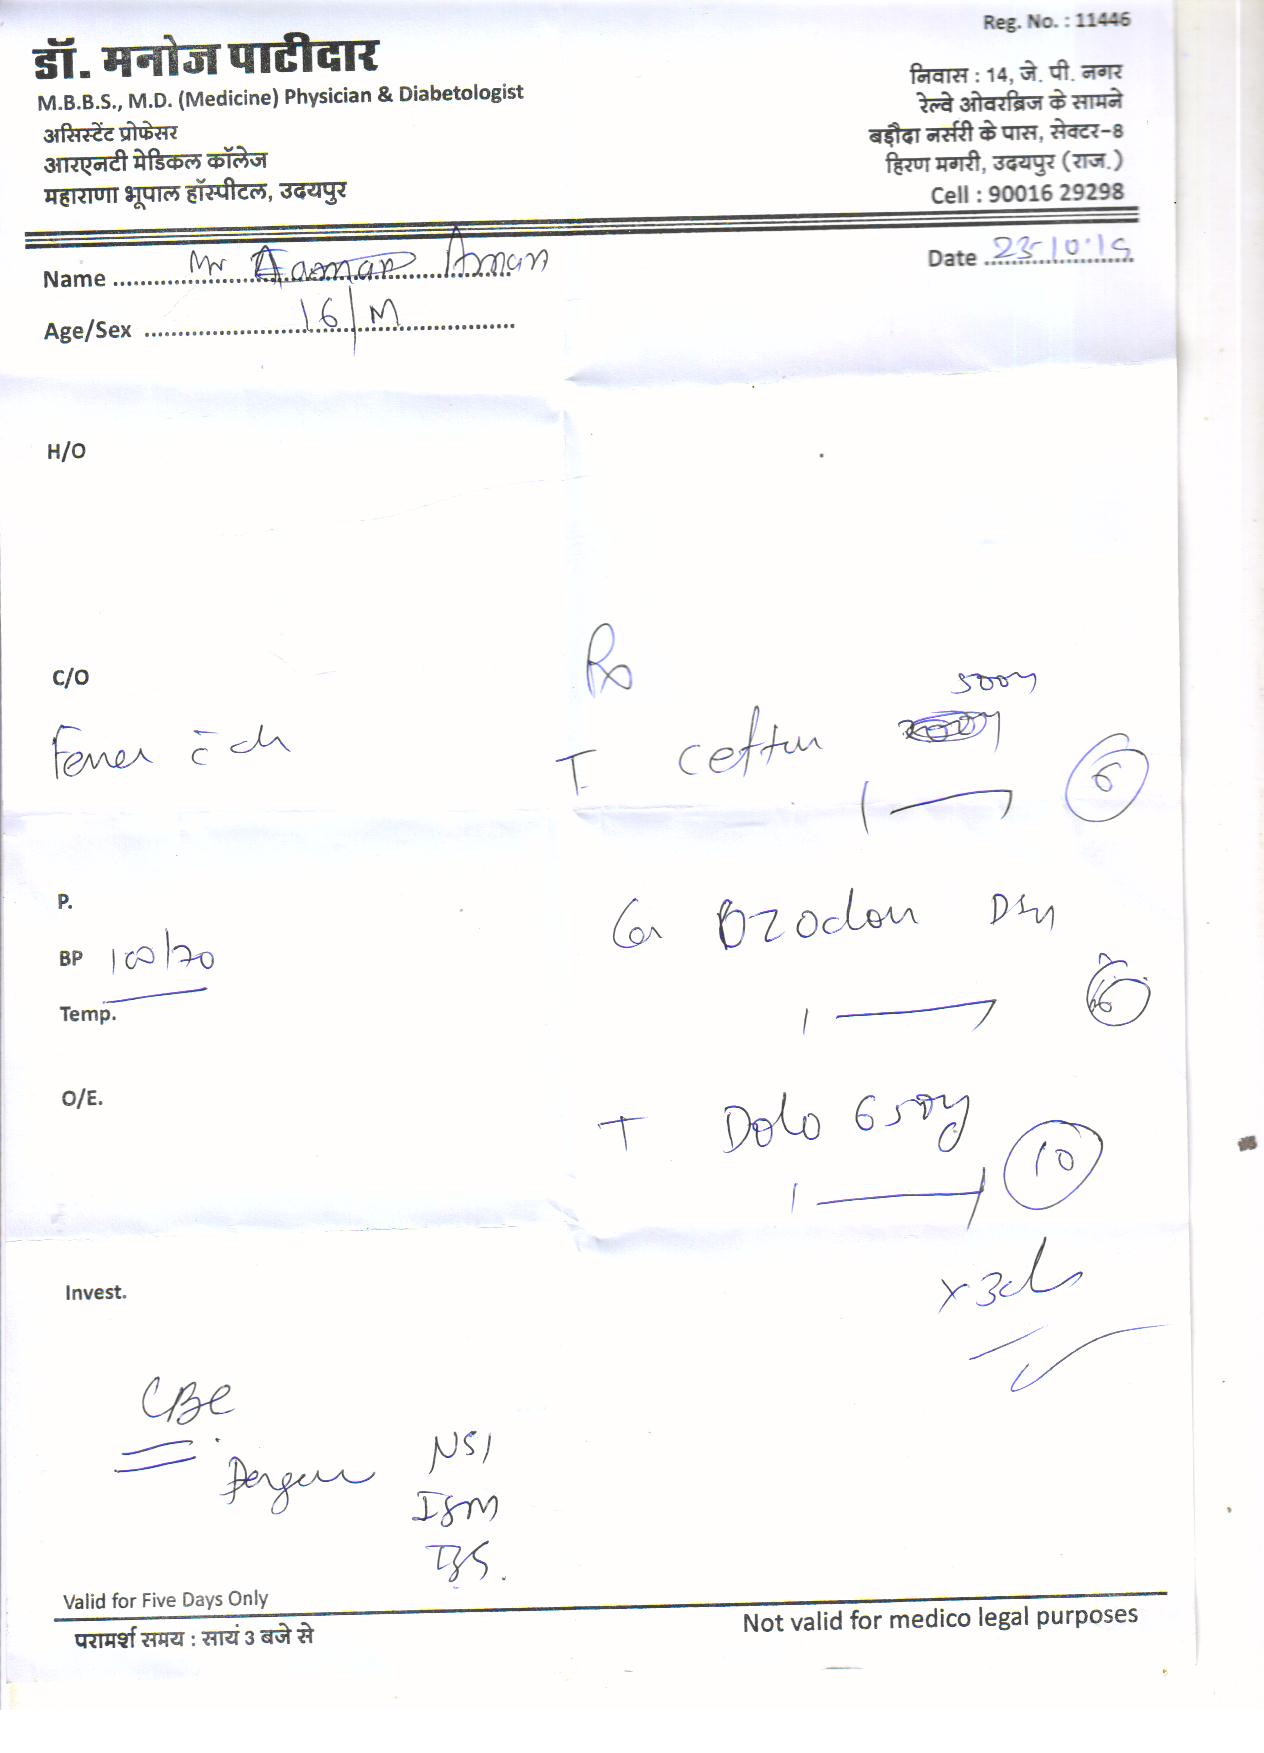 Reg. No. : 11446
डॉ. मनोज पाटीदार
M.B.B.S., M.D. (Medicine) Physician & Diabetologist
असिस्टेंट प्रोफेसर
आरएनटी मेडिकल कॉलेज
महाराणा भूपाल हॉस्पीटल, उदयपुर
निवास : 14, जे. पी. नगर
रेल्वे ओवरब्रिज के सामने
बड़ौदा नर्सरी के पास, सेक्टर-8
हिरण मगरी, उदयपुर (राज.)
Cell : 90016 29298
Name Mr Aman
Date 23-10-19
Age/Sex 16/M
H/O
C/O
Rx
500mg
Fever c̄ ch
T Ceftum
1 — 1 6
P.
BP 100/70
Temp.
O/E.
1 — 1 6
T Dolo 650mg
1 — 1 10
x 3d
Invest.
CBC
Dengue NS1
IgM
IgG.
Valid for Five Days Only
परामर्श समय : सायं 3 बजे से
Not valid for medico legal purposes